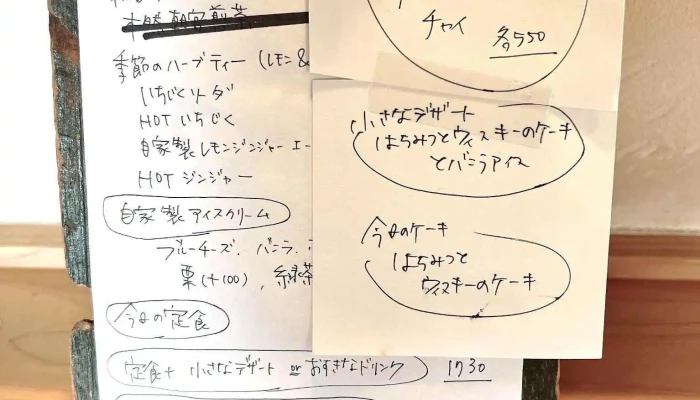 季節のハーブティー (レモン&
いちじくソーダ
HOT いちじく
自家製レモンジンジャーエー
HOT ジンジャー
自家製アイスクリーム
ブルーチーズ、バニラ、
栗(+100)、緑茶
今日の定食
定食+ 小さなデザート or おすきなドリンク 1730
チャイ 各550
小さなデザート
はちみつとウィスキーのケーキ
とバニラアイス
今日のケーキ
はちみつと
ウィスキーのケーキ